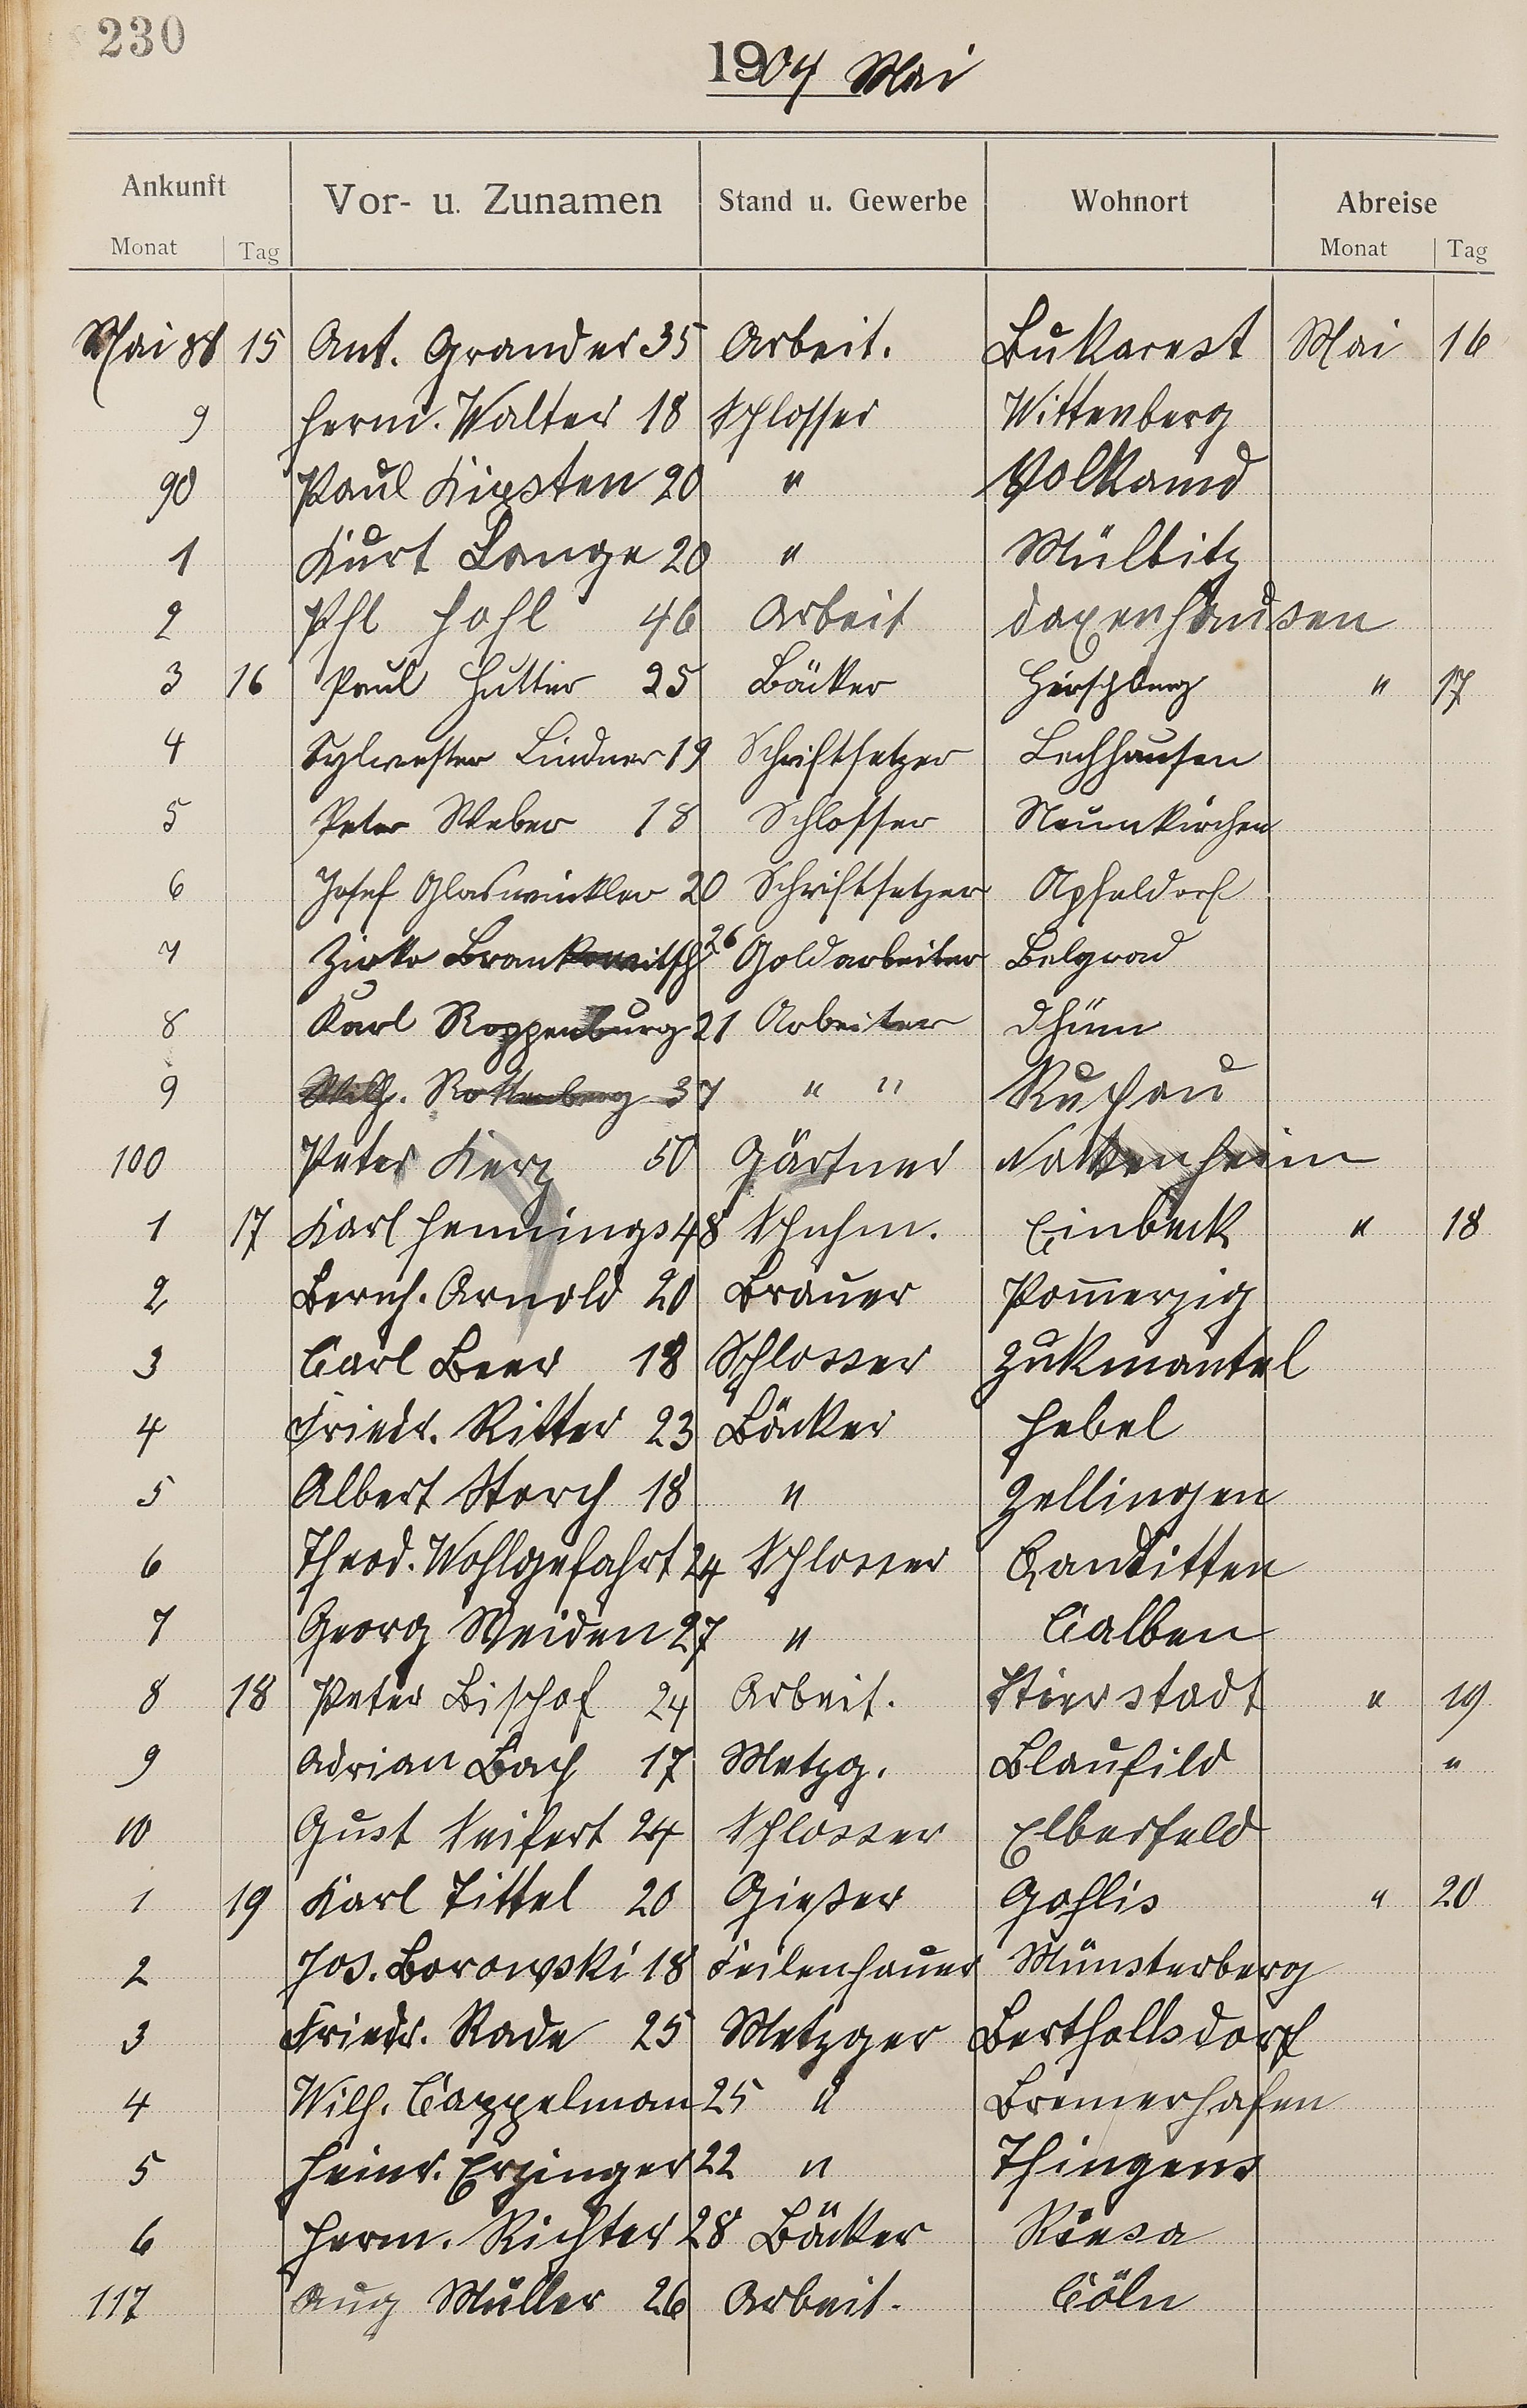 230
1904 Mai
Ankunft Vor- u. Zunamen Stand u. Gewerbe Wohnort Abreise
Monat Tag Monat Tag
Mai 88 15 Ant. Grander 35 Arbeit. Bukarest Mai 16
9 Herm. Walter 18 Schlosser Wittenberg
90 Paul Kirsten 20 "
1 Kurt Lange 20 " Mülbitz
2 Phl Hohl 46 Arbeit Daxenhausen
3 16 Paul Hutter 25 Bäcker Hirschberg " 17
4 Sylvester Lindner 19 Schriftsetzer Lechhausen
5 Peter Weber 18 Schlosser Neunkirchen
6 Josef Glaswinkler 20 Schriftsetzer Apfeldorf
7 Zirko Brankowitsch 26 Goldarbeiter Belgrad
8 Karl Roppenburg 21 Arbeiter Dhünn
9 Wilh. Rottenberg 37 " "
100 Peter Kerz 50 Gärtner Nakenheim
1 17 Karl Hennings 48 Schuhm. Einbeck " 18
2 Bernh. Arnold 20 Brauer Pom̄erzig
3 Carl Beer 18 Schlosser Zukmantel
4 Friedr. Ritter 23 Bäcker Hebel
5 Albert Storch 18 " Zellingen
6 Theod. Wohlgefahrt 24 Schlosser Canditten
7 Georg Weiden 27 " Calben
8 18 Peter Bischof 24 Arbeit. Stierstadt " 19
9 Adrian Bach 17 Metzg. Blaufild "
10 Gust Seifert 24 Schlosser Elberfeld
1 19 Karl Tittel 20 Gießer Gohlis " 20
2 Jos. Borowski 18 Feilenhauer Münsterberg
3 Friedr. Rade 25 Metzger Bertholsdorf
4 Wilh. Cappelman 25 " Bremerhafen
5 Heinr. Erzinger 22 " Thingens
6 Herm. Richter 28 Bäcker Riesa
117 Aug Müller 26 Arbeit. Cöln